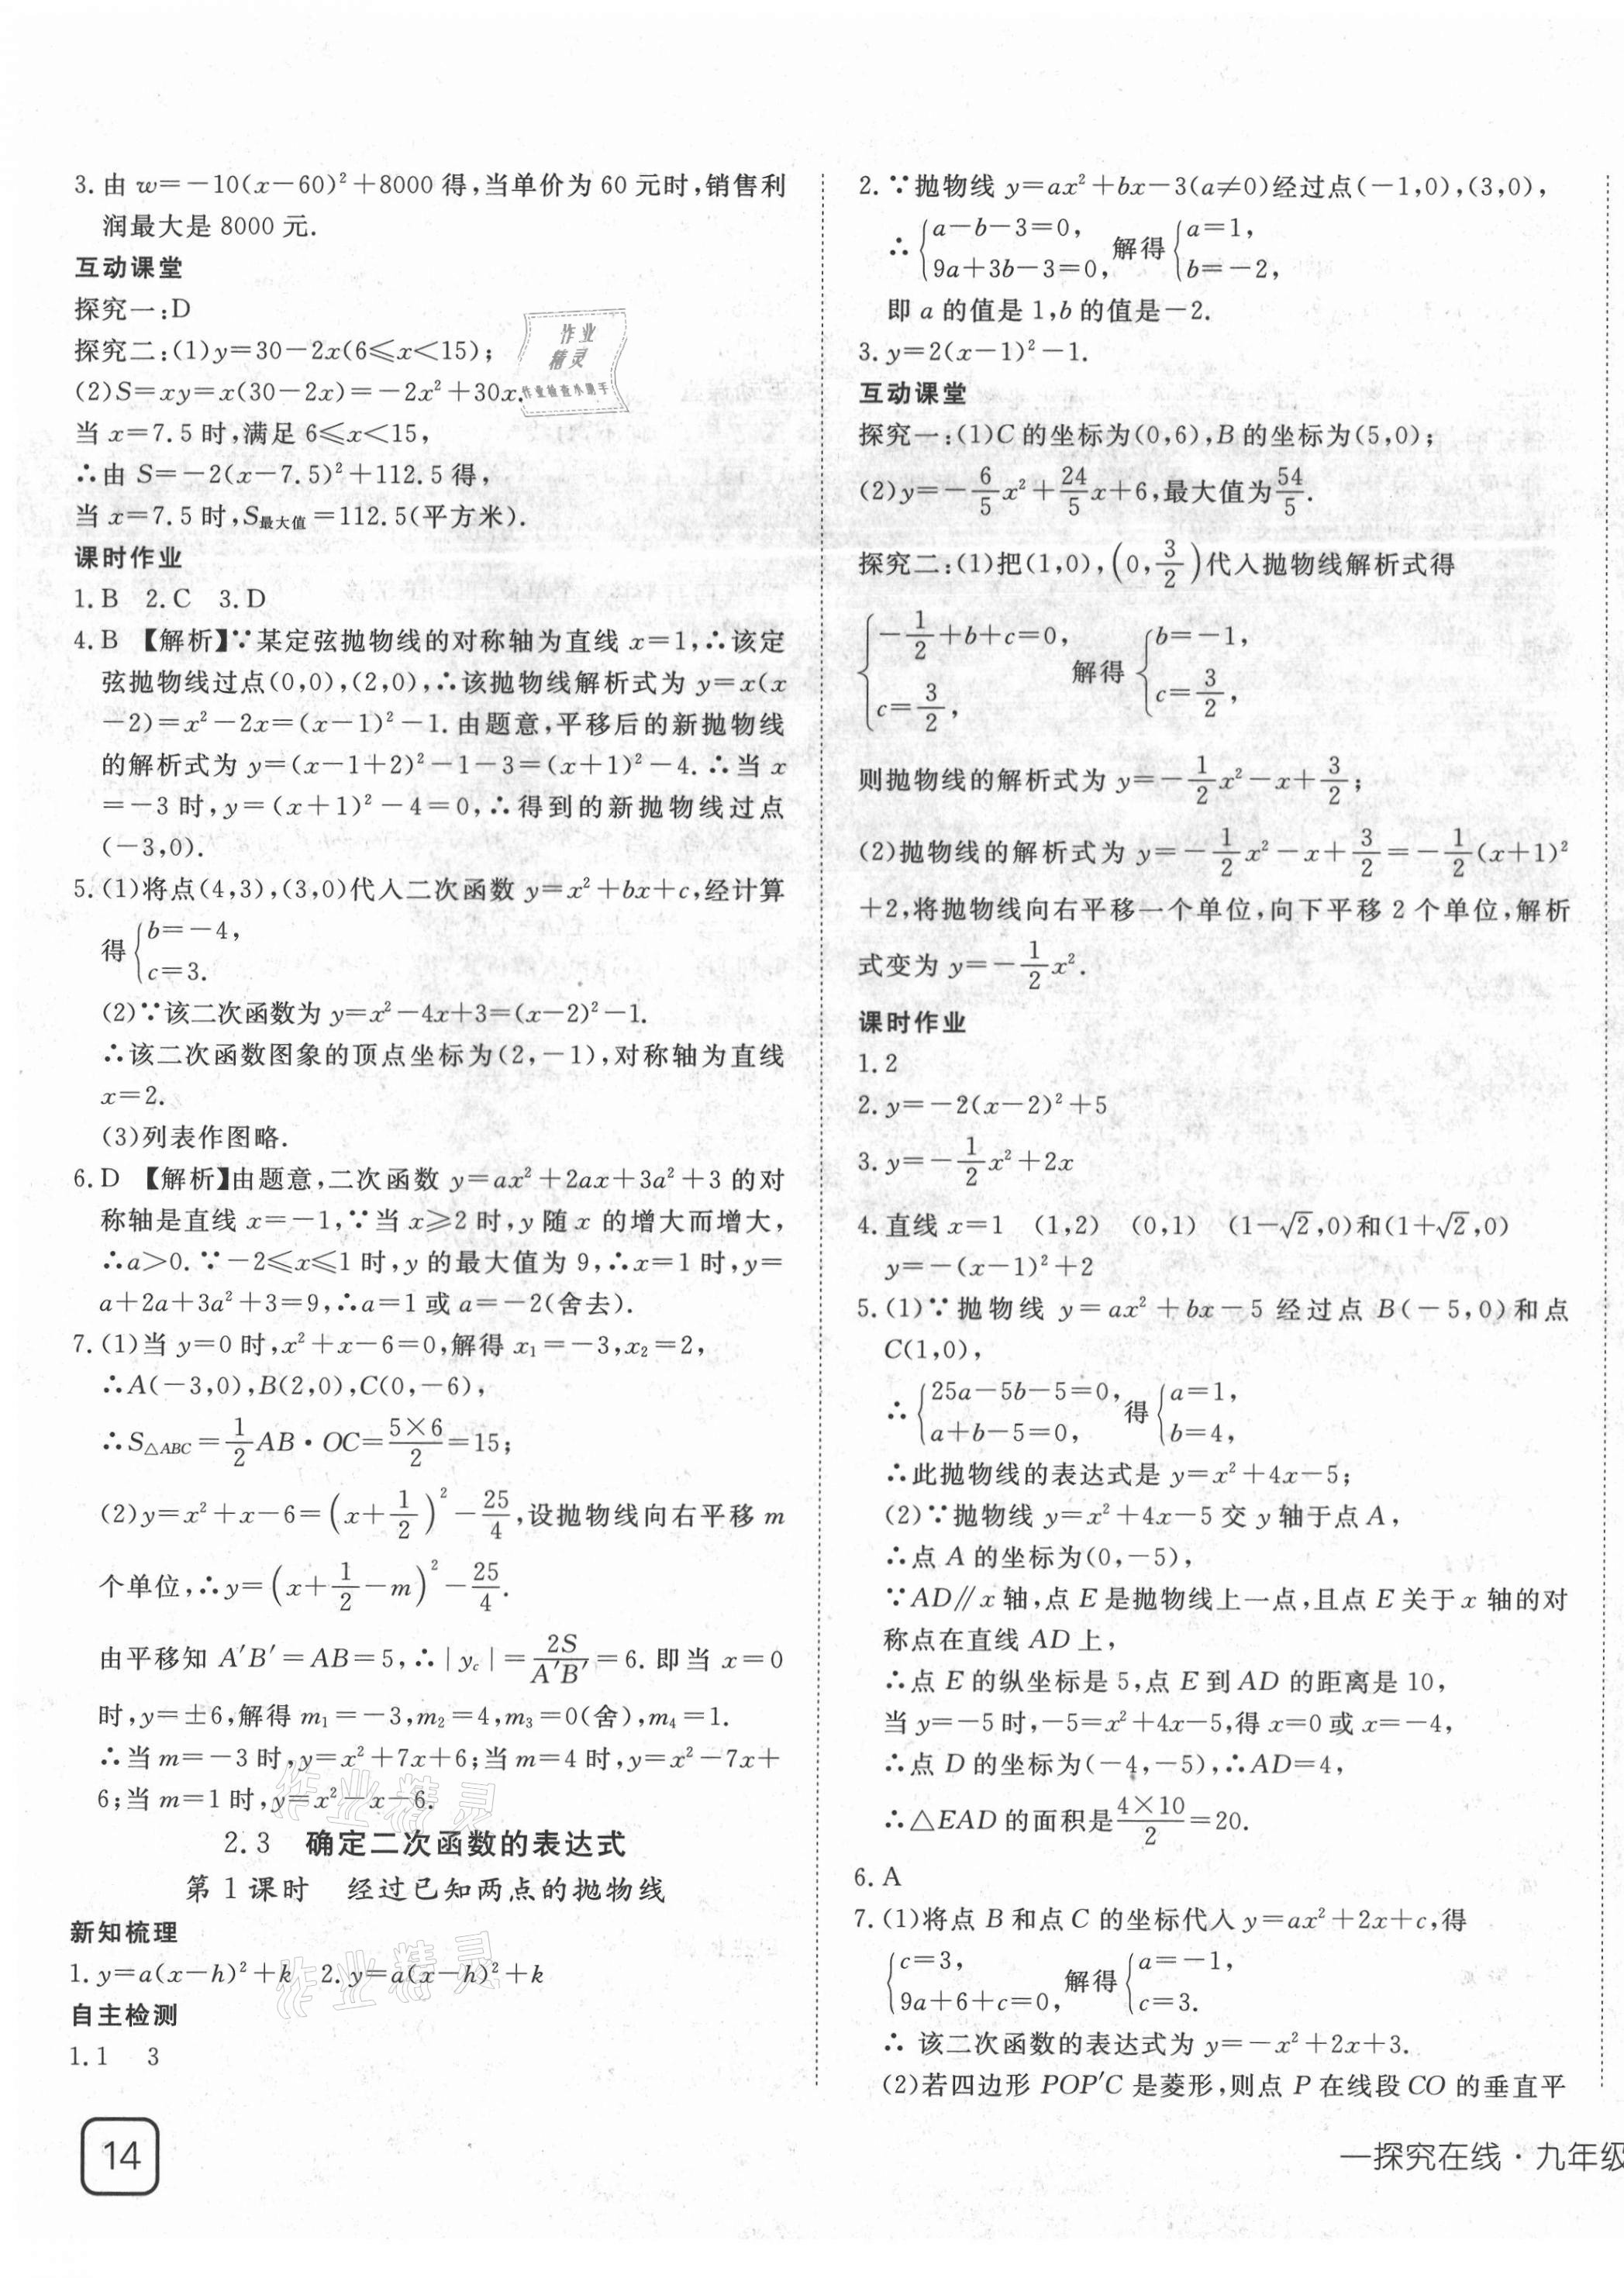 3. 由 w=-10(x-60)²+8000 得,当单价为 60 元时,销售利
润最大是 8000 元.
互动课堂
探究一:D
探究二:(1)y=30-2x(6≤x<15);
(2)S=xy=x(30-2x)=-2x²+30x.
当 x=7.5 时,满足 6≤x<15,
∴由 S=-2(x-7.5)²+112.5 得,
当 x=7.5 时,S最大值=112.5(平方米).
课时作业
1. B 2. C 3. D
4. B 【解析】∵某定弦抛物线的对称轴为直线 x=1,∴该定
弦抛物线过点(0,0),(2,0),∴该抛物线解析式为 y=x(x
-2)=x²-2x=(x-1)²-1. 由题意,平移后的新抛物线
的解析式为 y=(x-1+2)²-1-3=(x+1)²-4. ∴当 x
=-3 时,y=(x+1)²-4=0,∴得到的新抛物线过点
(-3,0).
5. (1)将点(4,3),(3,0)代入二次函数 y=x²+bx+c,经计算
得{b=-4,
c=3.
(2)∵该二次函数为 y=x²-4x+3=(x-2)²-1.
∴该二次函数图象的顶点坐标为(2,-1),对称轴为直线
x=2.
(3)列表作图略.
6. D 【解析】由题意,二次函数 y=ax²+2ax+3a²+3 的对
称轴是直线 x=-1,∵当 x≥2 时,y 随 x 的增大而增大,
∴a>0. ∵-2≤x≤1 时,y 的最大值为 9,∴x=1 时,y=
a+2a+3a²+3=9,∴a=1 或 a=-2(舍去).
7. (1)当 y=0 时,x²+x-6=0,解得 x₁=-3,x₂=2,
∴A(-3,0),B(2,0),C(0,-6),
∴S△ABC=1/2 AB·OC=5×6/2=15;
(2)y=x²+x-6=(x+1/2)²-25/4,设抛物线向右平移 m
个单位,∴y=(x+1/2-m)²-25/4.
由平移知 A′B′=AB=5,∴|y_c|=2S/A′B′=6. 即当 x=0
时,y=±6,解得 m₁=-3,m₂=4,m₃=0(舍),m₄=1.
∴当 m=-3 时,y=x²+7x+6;当 m=4 时,y=x²-7x+
6;当 m=1 时,y=x²-x-6.
2.3 确定二次函数的表达式
第 1 课时 经过已知两点的抛物线
新知梳理
1. y=a(x-h)²+k 2. y=a(x-h)²+k
自主检测
1. 1 3
2. ∵抛物线 y=ax²+bx-3(a≠0)经过点(-1,0),(3,0),
∴{a-b-3=0, 解得{a=1,
9a+3b-3=0, b=-2,
即 a 的值是 1,b 的值是-2.
3. y=2(x-1)²-1.
互动课堂
探究一:(1)C 的坐标为(0,6),B 的坐标为(5,0);
(2)y=-6/5x²+24/5x+6,最大值为54/5.
探究二:(1)把(1,0),(0,3/2)代入抛物线解析式得
{-1/2+b+c=0, 解得{b=-1,
c=3/2, c=3/2,
则抛物线的解析式为 y=-1/2x²-x+3/2;
(2)抛物线的解析式为 y=-1/2x²-x+3/2=-1/2(x+1)²
+2,将抛物线向右平移一个单位,向下平移 2 个单位,解析
式变为 y=-1/2x².
课时作业
1. 2
2. y=-2(x-2)²+5
3. y=-1/2x²+2x
4. 直线 x=1 (1,2) (0,1) (1-√2,0)和(1+√2,0)
y=-(x-1)²+2
5. (1)∵抛物线 y=ax²+bx-5 经过点 B(-5,0)和点
C(1,0),
∴{25a-5b-5=0, 得{a=1,
a+b-5=0, b=4,
∴此抛物线的表达式是 y=x²+4x-5;
(2)∵抛物线 y=x²+4x-5 交 y 轴于点 A,
∴点 A 的坐标为(0,-5),
∵AD∥x 轴,点 E 是抛物线上一点,且点 E 关于 x 轴的对
称点在直线 AD 上,
∴点 E 的纵坐标是 5,点 E 到 AD 的距离是 10,
当 y=-5 时,-5=x²+4x-5,得 x=0 或 x=-4,
∴点 D 的坐标为(-4,-5),∴AD=4,
∴△EAD 的面积是4×10/2=20.
6. A
7. (1)将点 B 和点 C 的坐标代入 y=ax²+2x+c,得
{c=3, 解得{a=-1,
9a+6+c=0, c=3.
∴ 该二次函数的表达式为 y=-x²+2x+3.
(2)若四边形 POP′C 是菱形,则点 P 在线段 CO 的垂直平
作业
精灵
作业检查小助手
作业精灵
作业精灵
14
—探究在线·九年级